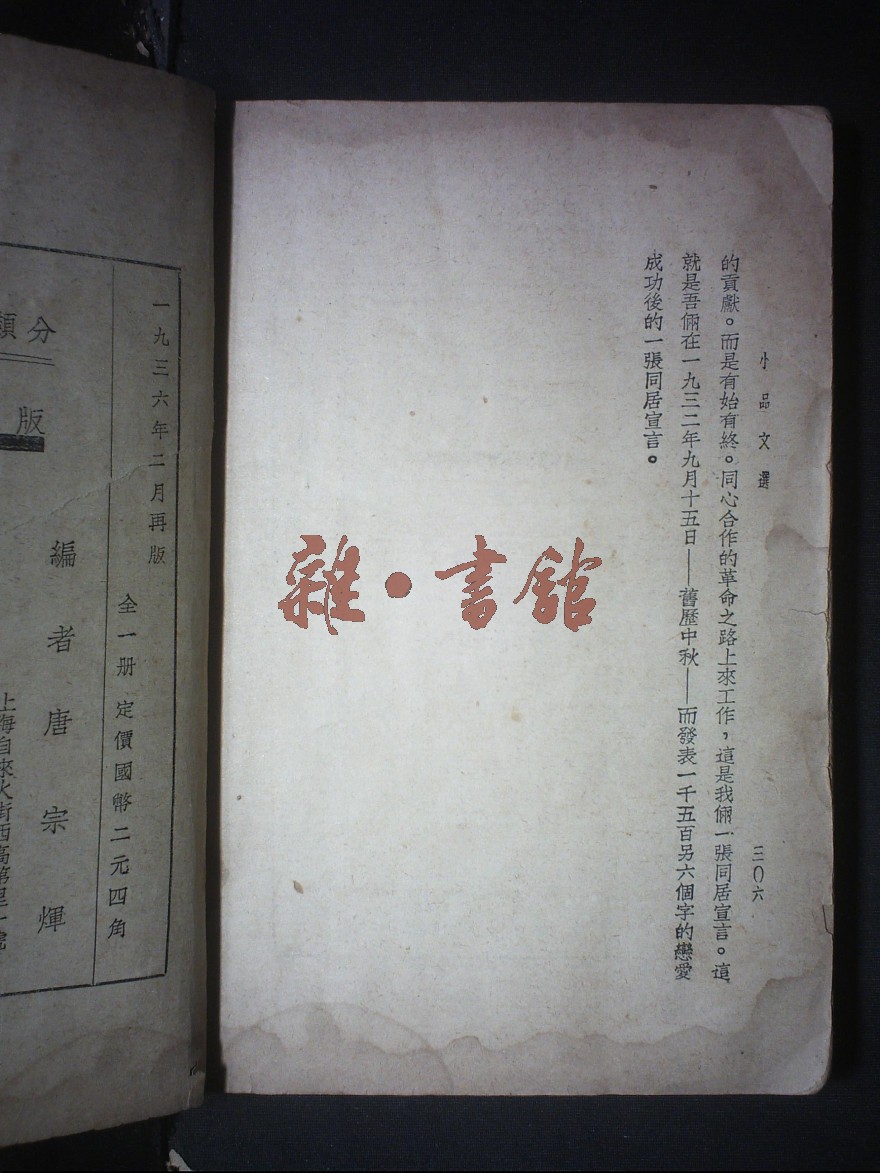 小品文選
三〇六
的貢獻。而是有始有終。同心合作的革命之路上來工作，這是我倆一張同居宣言。這
就是吾倆在一九三二年九月十五日——舊歷中秋——而發表一千五百另六個字的戀愛
成功後的一張同居宣言。
雜・書館
一九三六年二月再版
全一册 定價國幣二元四角
編者唐宗煇
上海自來火街西高第里一號
分類
版